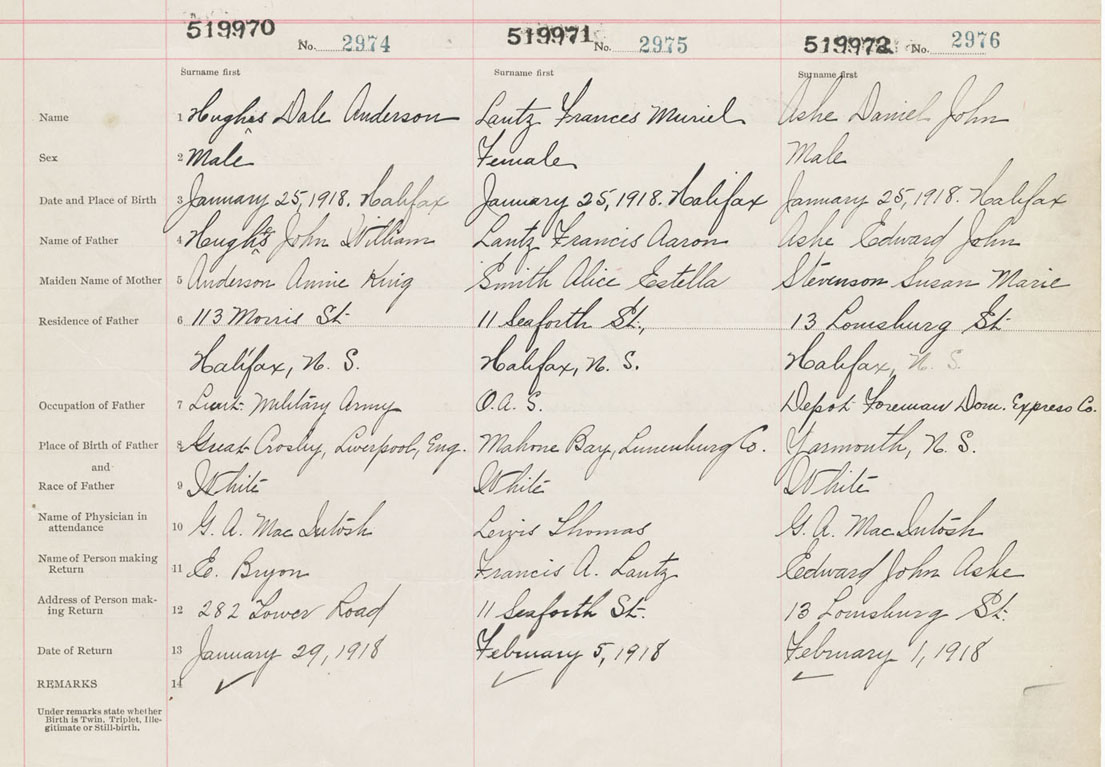 519970 No. 2974 519971 No. 2975 519972 No. 2976
Surname first Surname first Surname first
Name 1 Hughes Dale Anderson Lantz Frances Muriel Ashe Daniel John
Sex 2 Male Female Male
Date and Place of Birth 3 January 25, 1918. Halifax January 25, 1918. Halifax January 25, 1918. Halifax
Name of Father 4 Hughes John William Lantz Francis Aaron Ashe Edward John
Maiden Name of Mother 5 Anderson Annie King Smith Alice Estella Stevenson Susan Marie
Residence of Father 6 113 Morris St 11 Seaforth St., 13 Louisburg St
Halifax, N. S. Halifax, N. S. Halifax, N. S.
Occupation of Father 7 Lieut. Military Army O.A.S. Depot Foreman Dom. Express Co.
Place of Birth of Father 8 Great Crosby, Liverpool, Eng. Mahone Bay, Lunenburg Co. Yarmouth, N. S.
and
Race of Father 9 White White White
Name of Physician in attendance 10 G. A. MacIntosh Lewis Thomas G. A. MacIntosh
Name of Person making Return 11 E. Bryon Francis A. Lantz Edward John Ashe
Address of Person making Return 12 282 Tower Road 11 Seaforth St. 13 Louisburg St.
Date of Return 13 January 29, 1918 February 5, 1918 February 1, 1918
REMARKS 14
Under remarks state whether
Birth is Twin, Triplet, Ille-
gitimate or Still-birth.